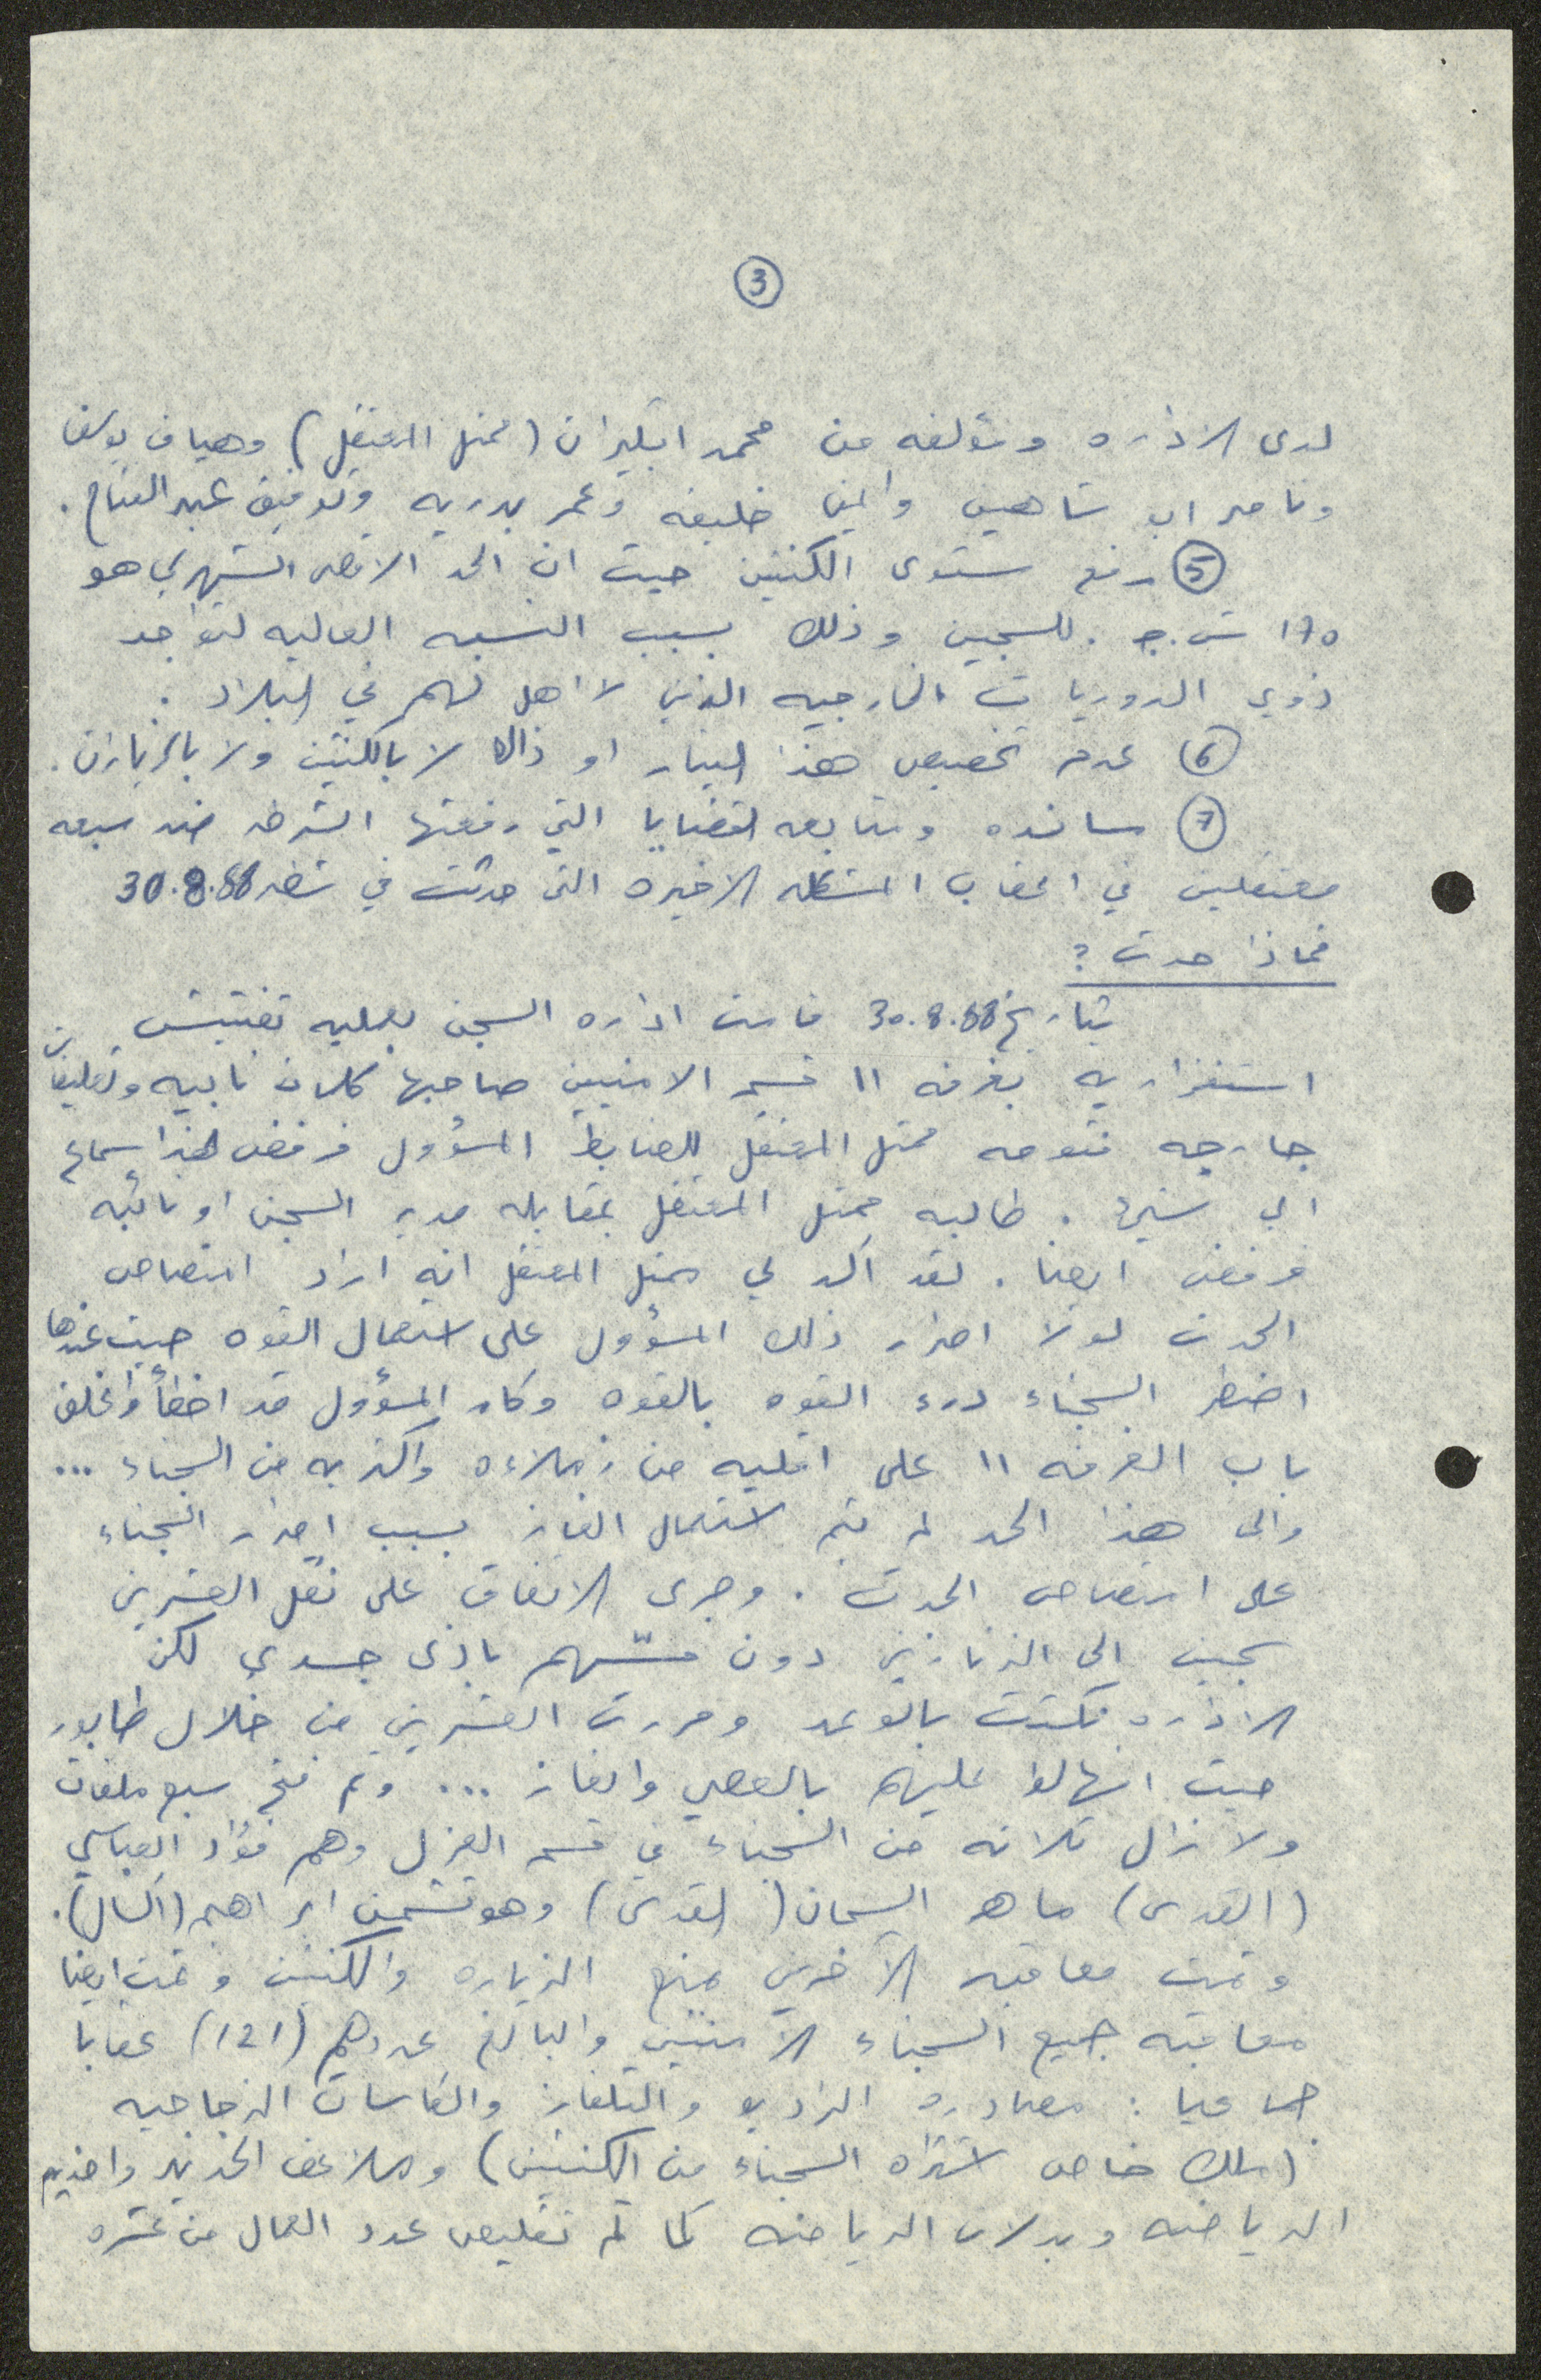 3
لدى الاداره ومؤلفه من محمد ابكيرات (ممثل المعتقل) وهياف يوسف
وناصر ابو شاهين وايمن خليفه وعمر بدريه وتوفيق عبد الفتاح .
5 رفع مستوى الكنتين حيث ان الحد الاقصى الشهري هو
170 ش.ج . للسجين وذلك بسبب النسبه العاليه لتواجد
ذوي الدوريات الخارجيه الذين لا اهل لهم في البلاد .
6 عدم تخصيص هذا اليسار او ذاك لا بالكنتين ولا بالزيارات .
7 مسانده ومتابعه القضايا التي رفعتها الشرطه ضد سبعه
معتقلين في اعقاب المشكله الاخيره التي حدثت في شطه 30.8.88
فماذا حدث ؟
بتاريخ 30.8.88 قامت اداره السجن بعمليه تفتيش
استفزازيه بغرفه 11 قسم الامنيين صاحبها كلمات نابيه وتعليقات
جارحه فتوجه ممثل المعتقل للضابط المسؤول فرفض هذا سماع
اي شيئ . طالبه ممثل المعتقل بمقابله مدير السجن او نائبه
فرفض ايضا . لقد اكد لي ممثل المعتقل انه اراد امتصاص
الحدث لولا اصرار ذلك المسؤول على استعمال القوه حيث عندها
اضطر السجناء درء القوه بالقوه وكان المسؤول قد اخطأ واغلق
باب الغرفه 11 على اقليه من زملاءه واكثريه من السجناء ...
والى هذا الحد لم يتم استعمال الغاز بسبب اصرار السجناء
على امتصاص الحدث . وجرى الاتفاق على نقل العشرين
سجين الى الزنازين دون مسّهم باذى جسدي لكن
الاداره نكثت بالوعد ومررت العشرين من خلال طابور
حيث انهالوا عليهم بالعصي والغاز ... وتم فتح سبع ملفات
ولا زال ثلاثه من السجناء في قسم العزل وهم فؤاد العباسي
(القدس) ماهر السمان (القدس) وهوتشمين ابراهيم (السال).
وتمت معاقبه الآخرين بمنع الزياره والكنتين وتمت ايضا
معاقبه جميع السجناء الامنيين والبالغ عددهم (121) عقابا
جماعيا : مصادره الراديو والتلفاز والكاسات الزجاجيه
(ملك خاص اشتراه السجناء من الكنتين) وملاعق الحديد واحذيه
الرياضه وبدلات الرياضه كما تم تقليص عدد العمال من عشره